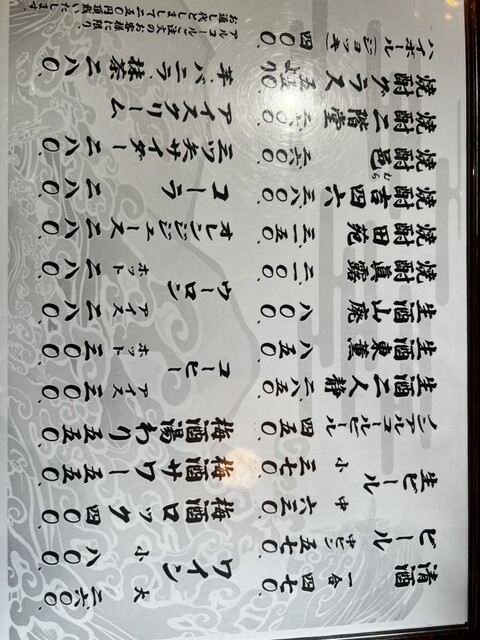 清酒 一合 四七〇、
ビール 中ビン 五七〇、
生ビール 中 六三〇、
小 三七〇、
ノンアルコールビール 四五〇、
生酒 二人静
生酒 東薫 八五〇、
生酒 山廃 八〇〇、
焼酎 眞露
焼酎 田苑 三一五〇、
焼酎 吉四六 三、八〇〇、
焼酎 邑 むら 二六〇〇、
焼酎 二階堂 二六〇〇、
焼酎グラス 五五〇、より
ハイボール(ジョッキ) 四〇〇、
ワイン 大 二六〇〇、
小 八〇〇、
梅酒ロック 四〇〇、
梅酒サワー 五五〇、
梅酒湯わり 五五〇、
コーヒー アイス 三〇〇、
ホット 三〇〇、
ウーロン アイス 二八〇、
ホット 二八〇、
オレンジジュース 二八〇、
コーラ 二八〇、
三ツ矢サイダー 二八〇、
アイスクリーム
芋、バニラ、抹茶 二八〇、
アルコールご注文のお客様に限り、
お通し代としまして二五〇円頂戴いたします。